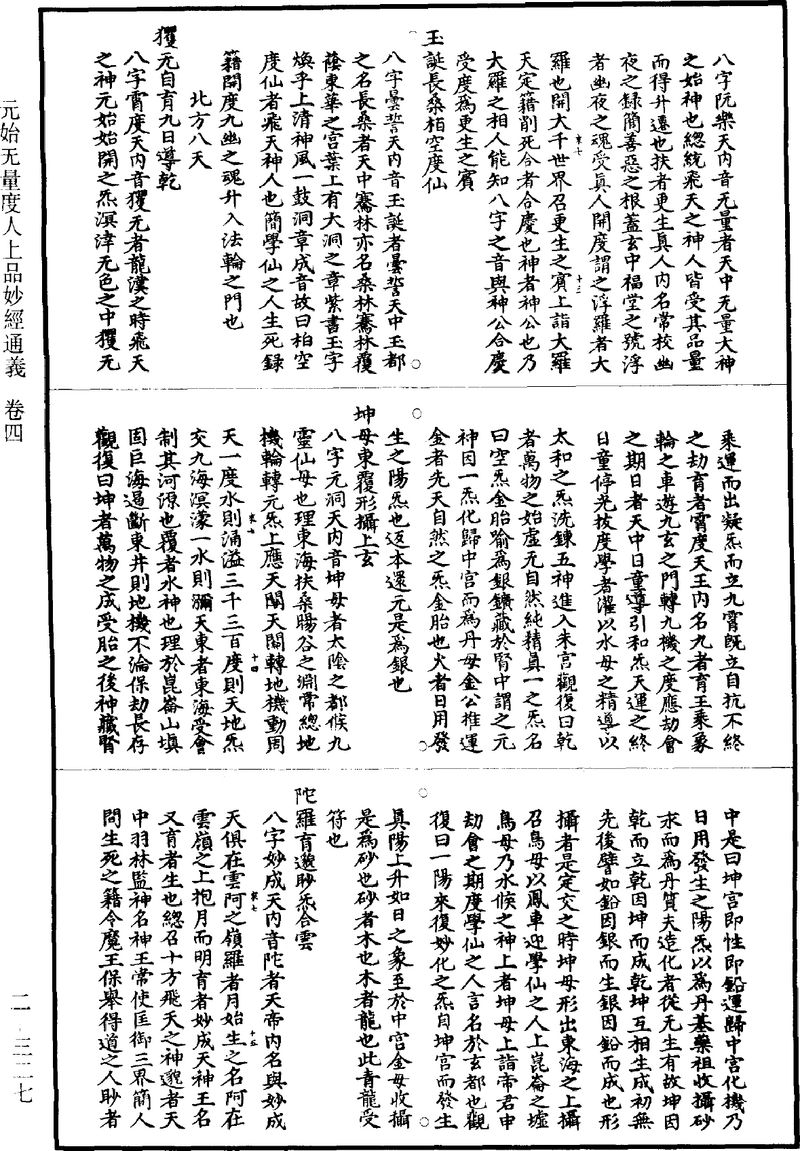 八字阮樂天內音无量者天中无量大神
之始神也總統飛天之神人皆受其品量
而得升遷也扶者更生真人內名常校幽
夜之錄簡善惡之根蓋玄中福堂之號浮
者幽夜之魂受真人開度謂之浮羅者大
羅也開大千世界召更生之賓上詣大羅
天定籍削死合者合慶也神者神公也乃
大羅之相人能知八字之音與神公合慶
受度為更生之賓
玉誕長桑栢空度仙
八字曇誓天內音玉誕者曇誓天中玉都
之名長桑者天中騫林亦名桑林騫林覆
蔭東華之宮葉上有大洞之章紫書玉字
煥乎上清神風一鼓洞章成音故曰柏空
度仙者飛天神人也簡學仙之人生死錄
籍開度九幽之魂升入法輪之門也
北方八天
玃元自育九日導乾
八字霄度天內音玃无者龍漢之時飛天
之神元始始開之炁溟涬无色之中玃无
乘運而出凝炁而立九霄既立自抗不終
之劫育者霄度天王內名九者育王乘象
輪之車遊九玄之門轉九機之度應劫會
之期日者天中日童導引和炁天運之終
日童停光披度學者灌以水母之精導以
太和之炁洗鍊五神進入朱宮觀復曰乾
者萬物之始虛无自然純精真一之炁名
曰空炁金胎喻為銀鑛藏於腎中謂之元
神因一炁化歸中宮而為丹母金公推運
金者先天自然之炁金胎也火者日用發
生之陽炁也返本還元是為銀也
坤母東覆形攝上玄
八字元洞天內音坤母者太陰之都候九
靈仙母也理東海扶桑暘谷之淵常總地
機輪轉元炁上應天關天關轉地機動周
天一度水則涌溢三千三百度則天地炁
交九海溟濛一水則瀰天東者東海受會
制其河源也覆者水神也理於崑崙山塡
固巨海遏斷東井則地機不淪保劫長存
觀復曰坤者萬物之成受胎之後神藏腎
中是曰坤宮即性即鉛運歸中宮化機乃
日用發生之陽炁以為丹基藥祖收攝砂
汞而為丹質夫造化者從无生有故坤因
乾而立乾因坤而成乾坤互相生成初無
先後譬如鉛因銀而生銀因鉛而成也形
攝者是定交之時坤母形出東海之上攝
召鳥母以鳳車迎學仙之人上崑崙之墟
鳥母乃水候之神上者坤母上詣帝君申
劫會之期度學仙之人言名於玄都也觀
復曰一陽來復妙化之炁自坤宮而發生
真陽上升如日之象至於中宮金母收攝
是為砂也砂者木也木者龍也此青龍受
符也
陀羅育邈眇炁合雲
八字妙成天內音陀者天帝內名與妙成
天俱在雲阿之嶺羅者月始生之名阿在
雲嶺之上抱月而明育者妙成天神王名
又育者生也總召十方飛天之神邈者天
中羽林監神名神王常使匡御三界簡人
間生死之籍令魔王保舉得道之人眇者
元始无量度人上品妙經通義 卷四
二-三二七